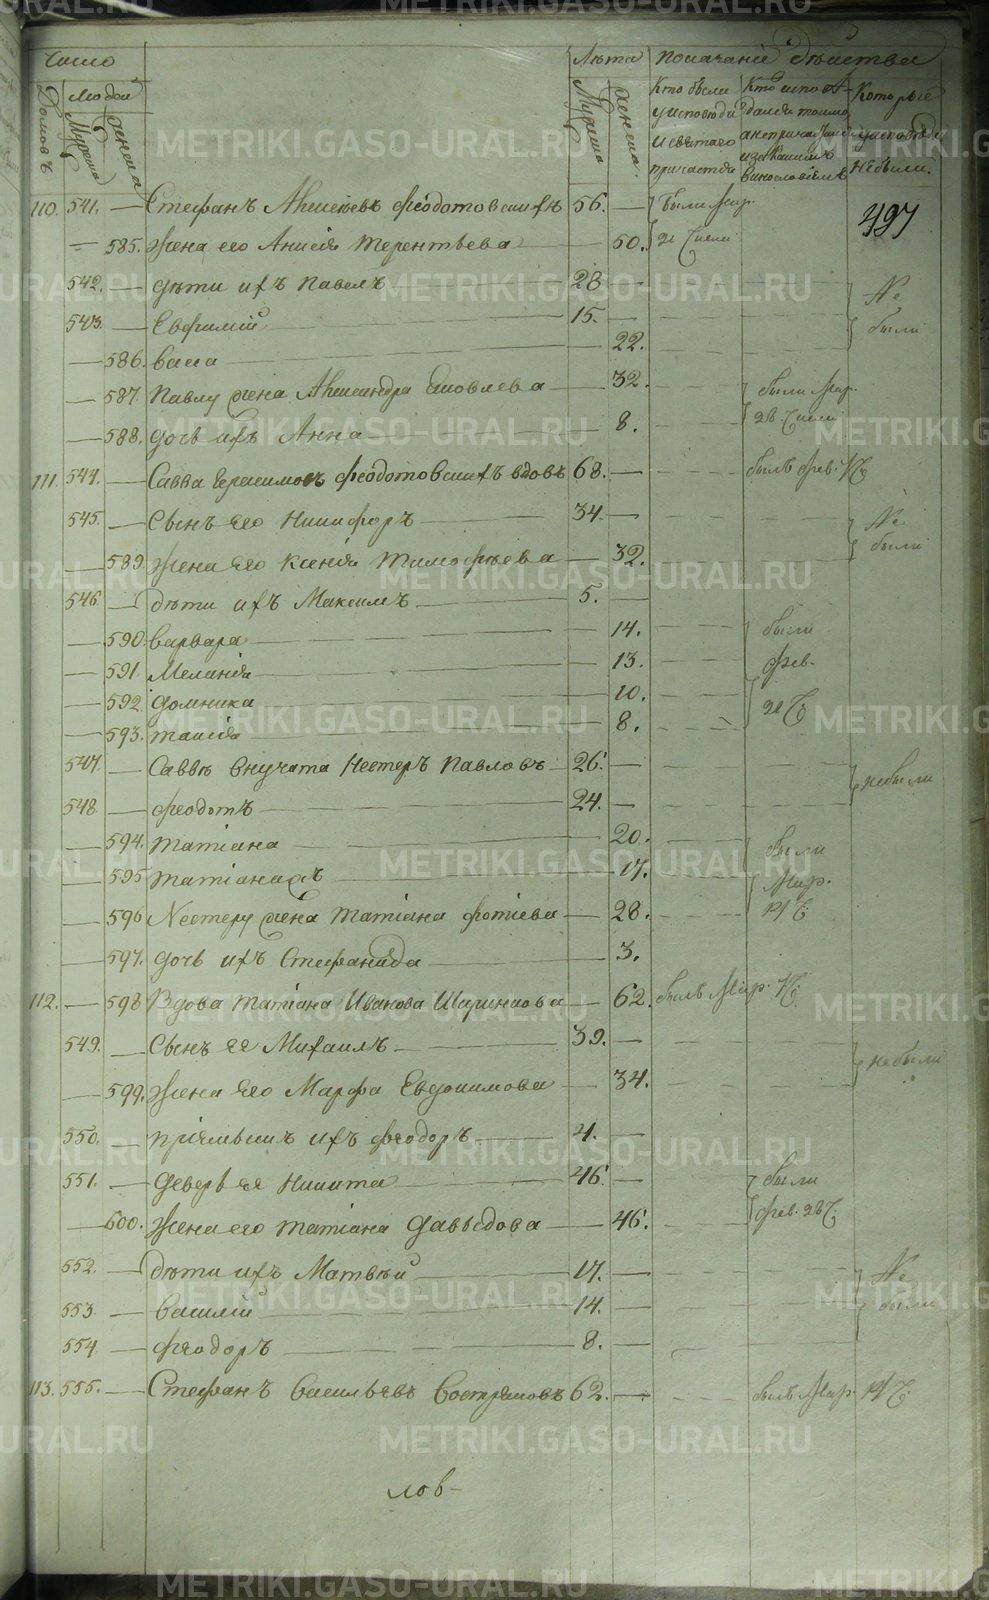 Число
Лѣта
Показаніе Дѣйства
Домовъ
Людей
Мужеска
Женска
Мужеска
Женска.
Кто были
у исповѣди
и святаго
причастія
Кто исповѣ-
дался токмо,
а не
и за какимъ
винословіемъ
Которые
у исповѣди
не были.
497
110. 541. Стефанъ Алексѣевъ Феодотовскихъ 56. были Мар.
585. Жена его Анисія Терентьева 50. числа
542. Дѣти ихъ Павелъ 28 Не
543. Евфимій 15. были
586. Васса 22.
587. Павлу жена Александра Яковлева 32. были Мар.
588. дочь ихъ Анна 8. числа
111. 544. Савва Герасимовъ Феодотовскихъ вдовъ 68. былъ Фев.
545. Сынъ его Никифоръ 34. Не
589. Жена его Ксенія Тимофѣева 32. были
546 дѣти ихъ Максимъ 5.
590. Варвара 14. были
591. Меланія 13. Фев.
592. Домника 10.
593. Таисія 8.
547. Саввѣ внучата Нестеръ Павловъ 26. не были
548 Феодотъ 24.
594. Татіана 20. были
595 Татіана 17. Мар.
596 Нестеру жена Татіана Фотіева 28.
597. дочь ихъ Стефанида 3.
112. 598 Вдова Татіана Иванова 62. былъ Мар.
549. Сынъ ея Михаилъ 39. не были
599. Жена его Марфа Евдокимова 34.
550. пріемышъ ихъ Феодоръ 4.
551. Деверь ея Никита 46. были
600. Жена его Татіана Давыдова 46. Фев.
552. дѣти ихъ Матвѣй 17. Не
553. Василій 14. были
554 Феодоръ 8.
113. 555. Стефанъ Васильевъ Востряковъ 62. былъ Мар.
лов-
METRIKI.GASO-URAL.RU